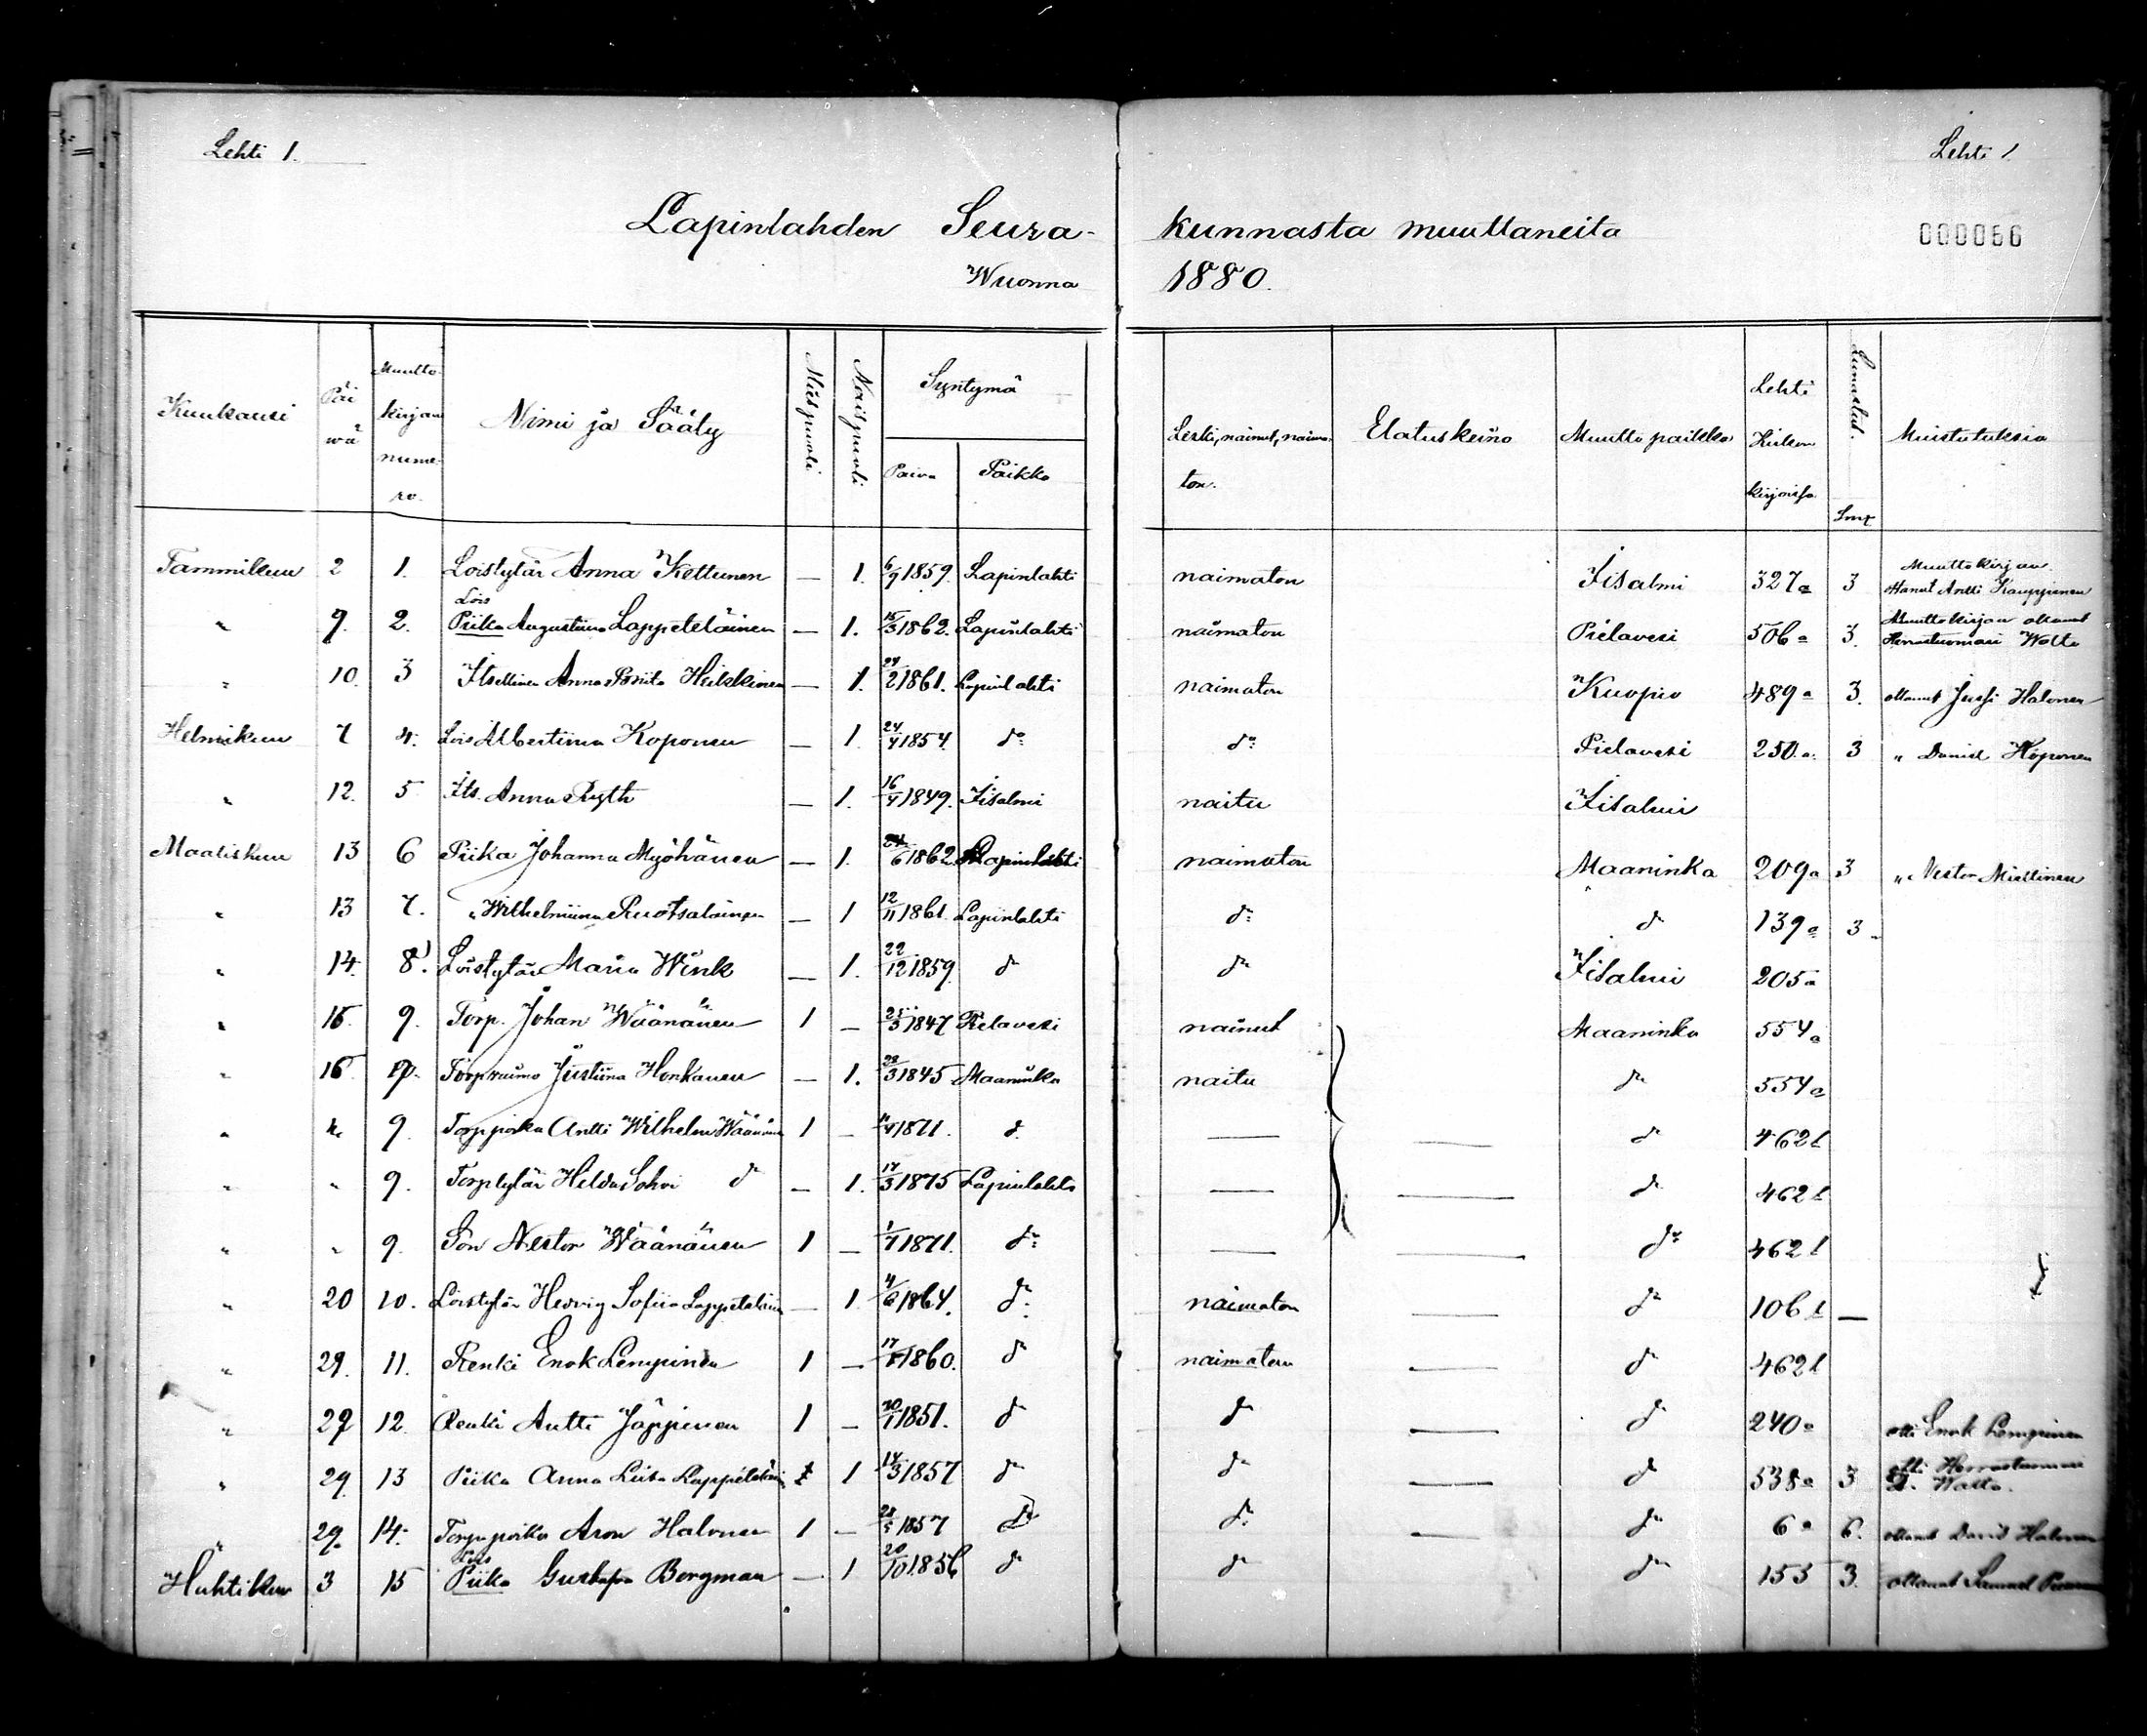 Lehti 1.
Lehti 1
Lapinlahden Seura-
kunnasta muuttaneita
000066
Wuonna
1880.
Kuukausi
Päi
wä
Muutto
kirjan
nume-
ro.
Nimi ja Sääty
Miespuoli
Naispuoli
Syntymä
Päiwä
Paikka
Leski, nainut, naima
ton.
Elatuskeino
Muutto paikka
Lehti
Kirkon
kirjoissa
Lunastus.
Smk
Muistutuksia
Tammikuu 2 1. Loistytär Anna Kettunen — 1. 6/9 1859. Lapinlahti naimaton Iisalmi 327a 3 Muuttokirjan
ottanut Antti Kauppinen
Lois
" 9. 2. Piika Augustiina Lappeteläinen — 1. 15/3 1862. Lapinlahti naimaton Pielavesi 506a 3. Muuttokirjan ottanut
Herrastuomari Watto
" 10. 3 Itsellinen Anna Heikkinen — 1. 24/2 1861. Lapinlahti naimaton Kuopio 489a 3. ottanut Jussi Halonen
Helmikuu 7 4. Lois Albertiina Koponen — 1. 24/4 1854. do do Pielavesi 250.a. 3 " Daniel Koponen
" 12. 5 Its. Anna Ryth — 1. 16/4 1849. Iisalmi naitu Iisalmi
Maaliskuu 13 6 Piika Johanna Myöhänen — 1. /6 1862 Lapinlahti naimaton Maaninka 209a 3 " Nestor Miettinen
" 13 7. " Wilhelmiina Ruotsalainen — 1 12/11 1861. Lapinlahti do d 139a 3
" 14. 8. Loistytär Maria Wink — 1. 22/12 1859. d d Iisalmi 205a
" 15. 9. Torp. Johan Wäänänen 1 — 25/3 1847 Pielavesi nainut Maaninka 554a
" 15. 9. Torp.vaimo Justiina Honkanen — 1. 28/3 1845 Maaninka naitu d 554a
" " 9. Torppoika Antti Wilhelm Wäänänen 1 — /4 1871. d. — — d 462b
" " 9. Torptytär Hilda Sohvi d — 1. 17/3 1875 Lapinlahti — — d 462b
" " 9. Son Nestor Wäänänen 1 — 1/7 1871. do — — do 462b
" 20 10. Loistytär Hedvig Sofiia Lappeteläinen — 1 4/6 1864. do naimaton — d 106b —
" 29. 11. Renki Enok Lempinen 1 — 17/ 1860. d naimaton — d 462b
" 29 12. Renki Antti Jäppinen 1 — 20/1 1851. d d — d 240a otti Enok Lempinen
" 29. 13 Piika Anna Liisa Lappeteläinen 1 14/3 1857 d d — d 538a 3 otti Herrastuomari
Watto.
" 29. 14. Torppoika Aron Halonen 1 — 28/5 1857 d do — d 6a 6. ottanut David Halonen
Lois
Huhtikuu 3 15 Piika Gustafva Borgman — 1 20/10 1856 d d d 155 3. ottanut Samuel